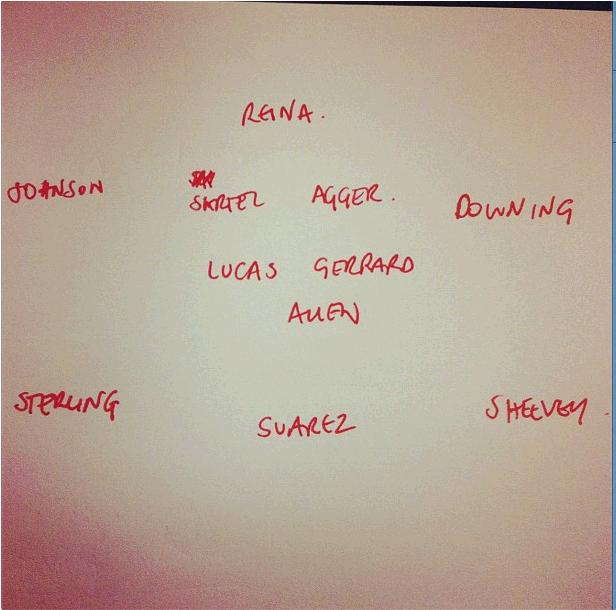 REINA.
JOHNSON SKRTEL AGGER. DOWNING
LUCAS GERRARD
ALLEN
STERLING SUAREZ SHELVEY.